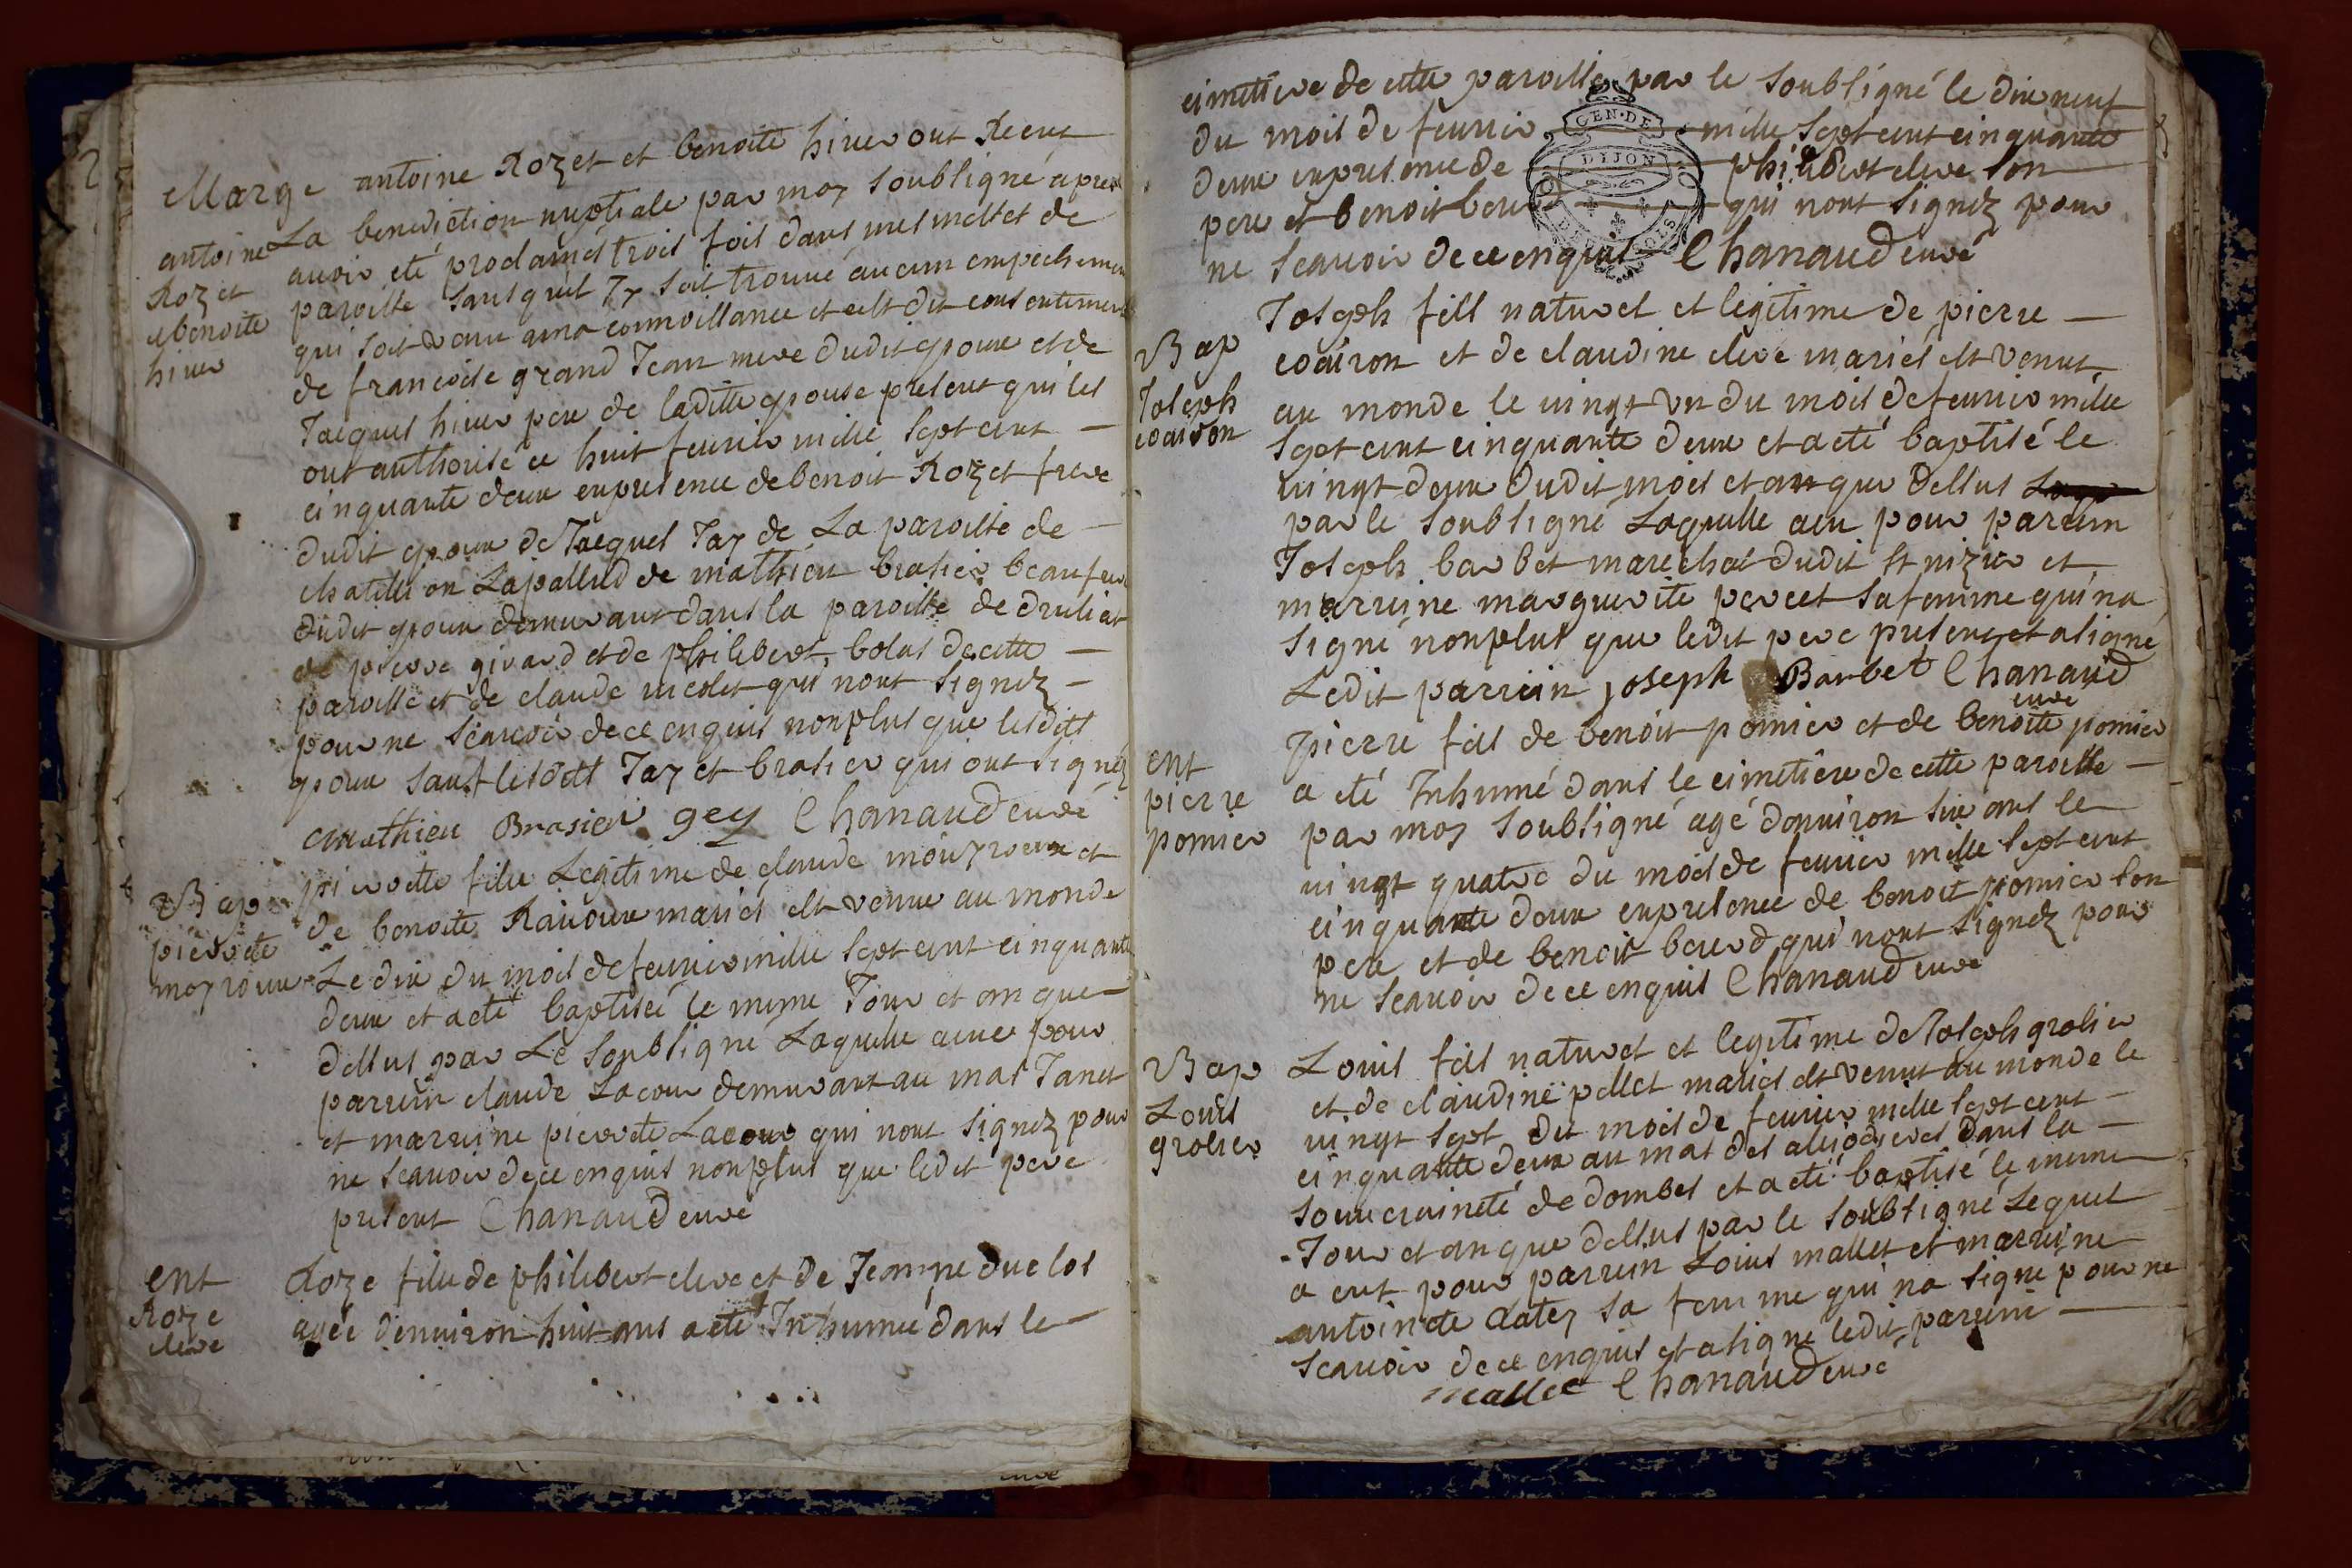 Marge
antoine
Rozet
et benoite
hiver
antoine Rozet et benoite hiver ont Receut
La benediction nuptiale par moy soubsigné apres
avoir eté proclamés trois fois dans mes messes de
paroisse sans quil sy soit trouvé aucun empechement
qui soit venu a ma connoissance et est du consentement
de francoise grand Jean mere dudit epoux et de
Jacques hiver pere de laditte epouse present qui les
ont authorisé ce huit fevrier mille sept cent
cinquante deux en presence de benoit Rozet frere
dudit epoux de Jacques Jay de La paroisse de
chatillion Lapallud de mathieu brasier beaufrere
dudit epoux demeurant dans la paroisse de druliat
de pierre girard et de philibert bolas de cette
paroisse et de claude nicolet qui nont signez
pour ne scavoir de ce enquis nonplus que lesdits
epoux sauf lesdits Jay et brasier qui ont signéz
mathieu Brasier gey Chanaud curé
Bap
pierrete
moyroux
pierrette fille Legitime de claude moiyroux et
de benoite Ravoux mariés est venue au monde
Le dix du mois de fevrier mille sept cent cinquante
deux et a eté baptisée le mesme Jour et an que
dessus par Le soubsigné Laquelle a eue pour
parrein claude Lacour demeurant au mas Janet
et marreine pierrete Lacour qui nont signez pour
ne scavoir de ce enquis nonplus que ledit pere
present Chanaud curé
ent
Roze
clere
Roze fille de philibert clere et de Jeanne duclos
agée denviron huit ans a eté Inhumée dans le
cimetiere de cette paroisse par le soubsigné le dix neuf
du mois de fevrier mille sept cent cinquante
deux en presence de philibert clere son
pere et benoit berrd qui nont signez pour
ne scavoir de ce enquis Chanaud curé
GEN·DE
DIJON
Bap
Joseph
coairon
Joseph fils naturel et legitime de pierre
coairon et de claudine clere mariés est venut
au monde le vingt un du mois de fevrier mille
sept cent cinquante deux et a eté baptisé le
vingt deux dudit mois et an que dessus
par le soubsigné Laquelle a eu pour parrein
Joseph barbet marechal dudit st nizier et
marreine marguerite percet sa femme qui na
signé nonplus que ledit pere present et a signé
Ledit parrein joseph Barbet Chanaud
curé
ent
pierre
pomier
pierre fils de benoit pomier et de benoite pomier
a eté Inhumé dans le cimetiere de cette paroisse
par moy soubsigné agé denviron six ans le
vingt quatre du mois de fevrier mille sept cent
cinquante deux en presence de benoit pomier son
pere et de benoit berrd qui nont signez pour
ne scavoir de ce enquis Chanaud curé
Bap
Louis
grolier
Louis fils naturel et legitime de Joseph grolier
et de claudine pellet mariés est venut au monde le
vingt sept du mois de fevrier mille sept cent
cinquante deux au mas des dans la
souveraineté de dombes et a eté baptisé le mesme
Jour et an que dessus par le soubsigné Lequel
a eut pour parrein Louis mallet et marreine
antoinete datey sa femme qui na signe pour ne
scavoir de ce enquis et a signé ledit parrein
mallet Chanaud curé